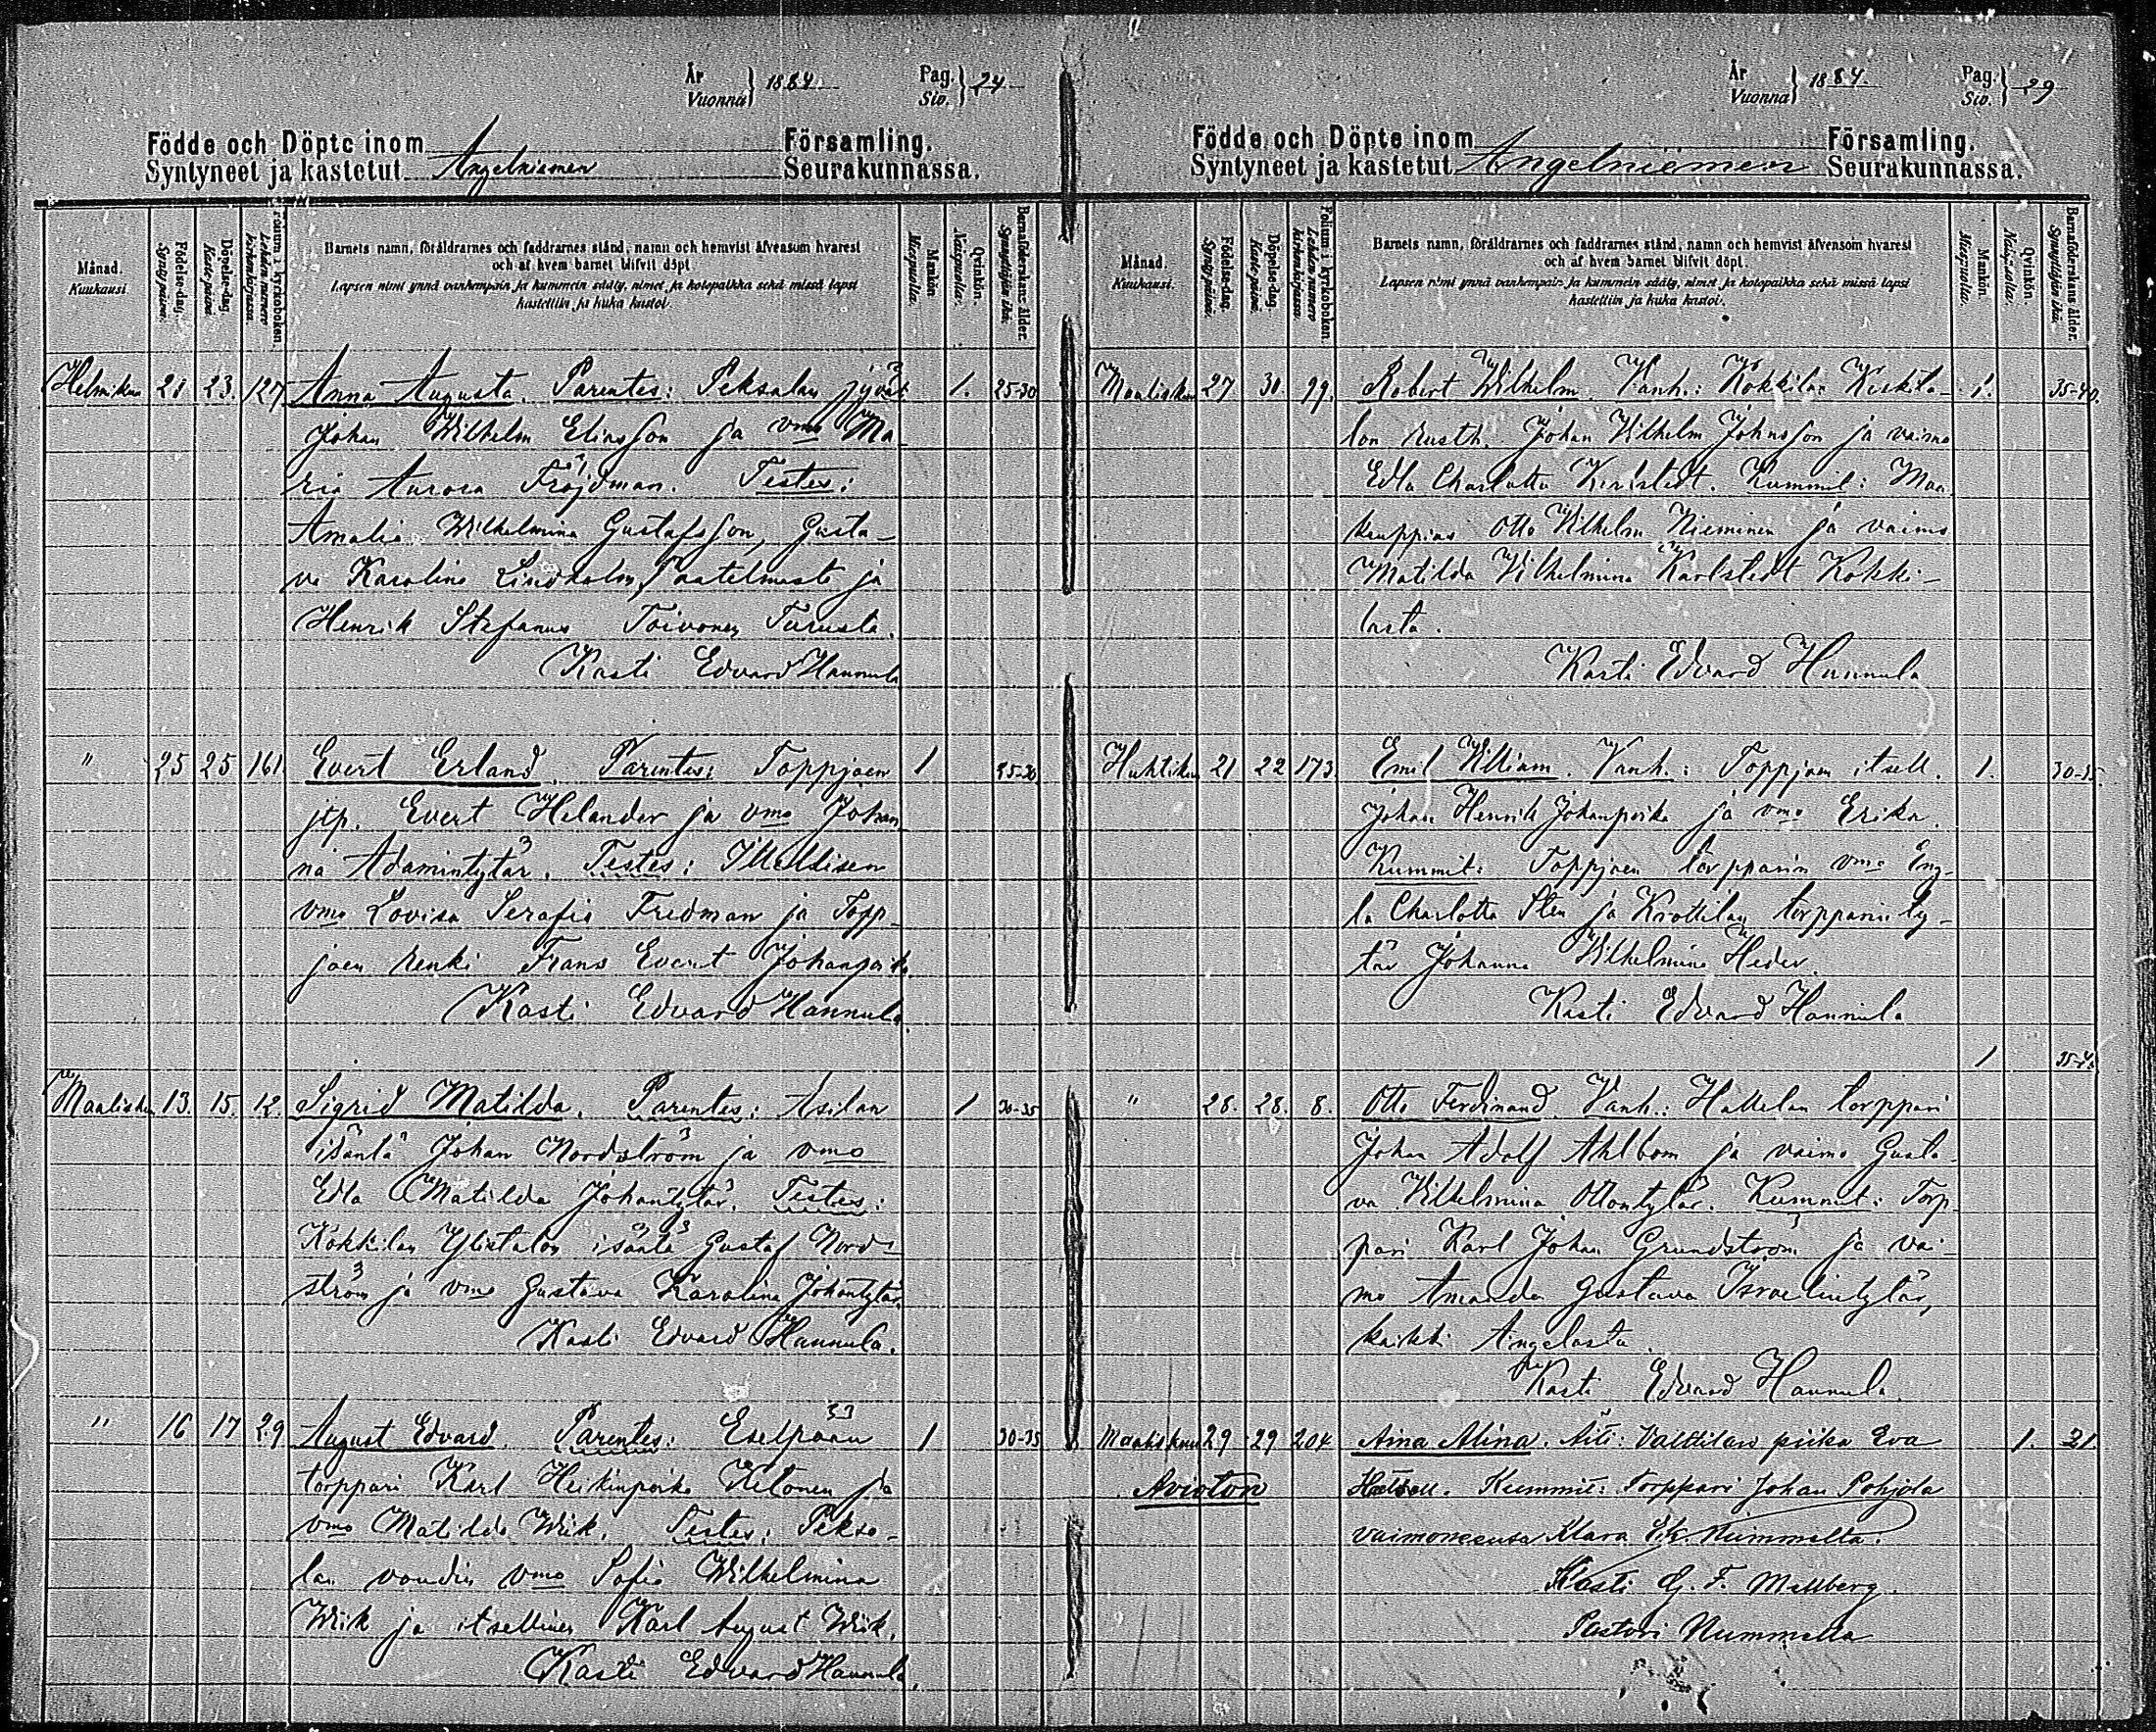 År Vuonna } 1884 Pag. Siv. } 24
Födde och Döpte inom Församling.
Syntyneet ja kastetut Angelniemen Seurakunnassa.
Månad. Kuukausi.
Födelse-dag. Syntypäivä.
Döpelse-dag. Kastepäivä.
Folium i kyrkoboken. Lehden numero kirkonkirjassa.
Barnets namn, föräldrarnes och faddrarnes stånd, namn och hemvist äfvensom hvarest
och af hvem barnet blifvit döpt
Lapsen nimi ynnä vanhempain ja kummein sääty, nimet ja kotopaikka sekä missä lapsi
kastettiin ja kuka kastoi.
Mankön Miespuolia.
Qvinkön. Naispuolia.
Barnaföderskans ålder. Synnyttäjän ikä.
Helmikuu 21 23. 127 Anna Augusta. Parentes: Peksalan 1. 25-30
Johan Wilhelm Eliasson ja vmo Ma-
ria Aurora Fröjdman. Testes:
Amalia Wilhelmina Gustafsson, Gusta-
va Karolina Lindholm, ja
Henrik Stefanus Toivonen Turusta.
Kasti Edvard Hannula
" 25 25 161. Evert Erland. Parentes: Toppjoen 1 25-30
jtp. Evert Helander ja vmo Johan-
na Adamintytär. Testes:
vmo Lovisa Serafia Fredman ja Topp-
joen renki Frans Evert Johanpoika.
Kasti Edvard Hannula.
Maalisku 13. 15. 12. Sigrid Matilda. Parentes: Asilan 1 30-35
isäntä Johan Nordström ja vmo
Edla Matilda Johantytär. Testes:
Kokkilan Ylistalon isäntä Gustaf Nord-
ström ja vmo Gustava Karolina Johantytär.
Kasti Edvard Hannula.
" 16 17 29 August Edvard. Parentes: Eselpään 1 30-35
torppari Karl Heikinpoika Ketonen ja
vmo Matilda Wiik. Testes: Peksa-
lan voudin vmo Sofia Wilhelmina
Wiik ja itsellinen Karl August Wiik.
Kasti Edvard Hannula.
År Vuonna } 1884. Pag. Siv. } 29
Födde och Döpte inom Församling.
Syntyneet ja kastetut Angelniemen Seurakunnassa.
Månad. Kuukausi.
Födelse-dag. Syntypäivä.
Döpelse-dag. Kastepäivä.
Folium i kyrkoboken. Lehden numero kirkonkirjassa.
Barnets namn, föräldrarnes och faddrarnes stånd, namn och hemvist äfvensom hvarest
och af hvem barnet blifvit döpt.
Lapsen nimi ynnä vanhempain ja kummein sääty, nimet ja kotopaikka sekä missä lapsi
kastettiin ja kuka kastoi.
Mankön. Miespuolia.
Qvinkön. Naispuolia.
Barnaföderskans ålder. Synnyttäjän ikä.
Maalisku 27 30. 99. Robert Wilhelm. Vanh.: Kokkilan Keskita- 1. 35-40.
lon rusth. Johan Vilhelm Johnsson ja vaimo
Edla Charlotta Karlstedt. Kummit: Maa-
kauppias Otto Vilhelm Nieminen ja vaimo
Matilda Vilhelmina Karlstedt Kokki-
lasta.
Kasti Edvard Hannula
Huhtikuu 21 22 173. Emil William. Vanh.: Toppjoen itsell. 1. 30-35
Johan Henrik Johanpoika ja vmo Erika.
Kummit: Toppjoen torpparin vmo Eng-
la Charlotta Sten ja Krottilan torpparin ty-
tär Johanna Wilhelmina Heder.
Kasti Edvard Hannula
1 35-40
" 28. 28. 8. Otto Ferdinand. Vanh.: torppari
Johan Adolf Ahlbom ja vaimo Gusta-
va Vilhelmina Ottontytär. Kummit: Torp-
pari Karl Johan Grundström ja vai-
mo Amanda Gustava Israelintytär,
kaikki Angelasta.
Kasti Edvard Hannula.
Maaliskuu 29 29 204 Aina Alina. Äiti: Valttilan piika Eva 1. 21
Avioton Kummit: Torppari Johan Pohjola
vaimoneensa Klara Nummelta.
Kasti G. F. Mellberg.
Pastori Nummella